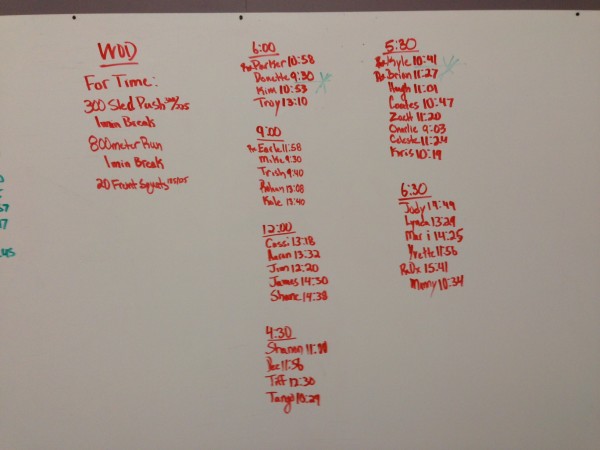 WOD
For Time:
300 Sled Push
1 min Break
800 meter Run
1 min Break
20 Front Squats
6:00
Rx Parker 10:58
Donette 9:30
Kim 10:53
Troy 13:10
9:00
Rx Earle 11:58
Mike 9:30
Trish 9:40
13:08
Kale 13:40
12:00
Cassi 13:18
Aaron 13:32
Jim 12:20
James 14:30
Shane 14:38
4:30
Shanon
11:56
Tiff 12:30
Tango 10:29
5:30
Rx Kyle 10:41
Rx Brian 11:27
Hugh 11:01
Coates 10:47
Zach 11:20
Charlie 9:03
Celeste 11:24
Kris 10:19
6:30
Jody
Lynda 13:29
Mari 14:25
Yvette 11:56
15:41
Merry 10:34
57
17
:45